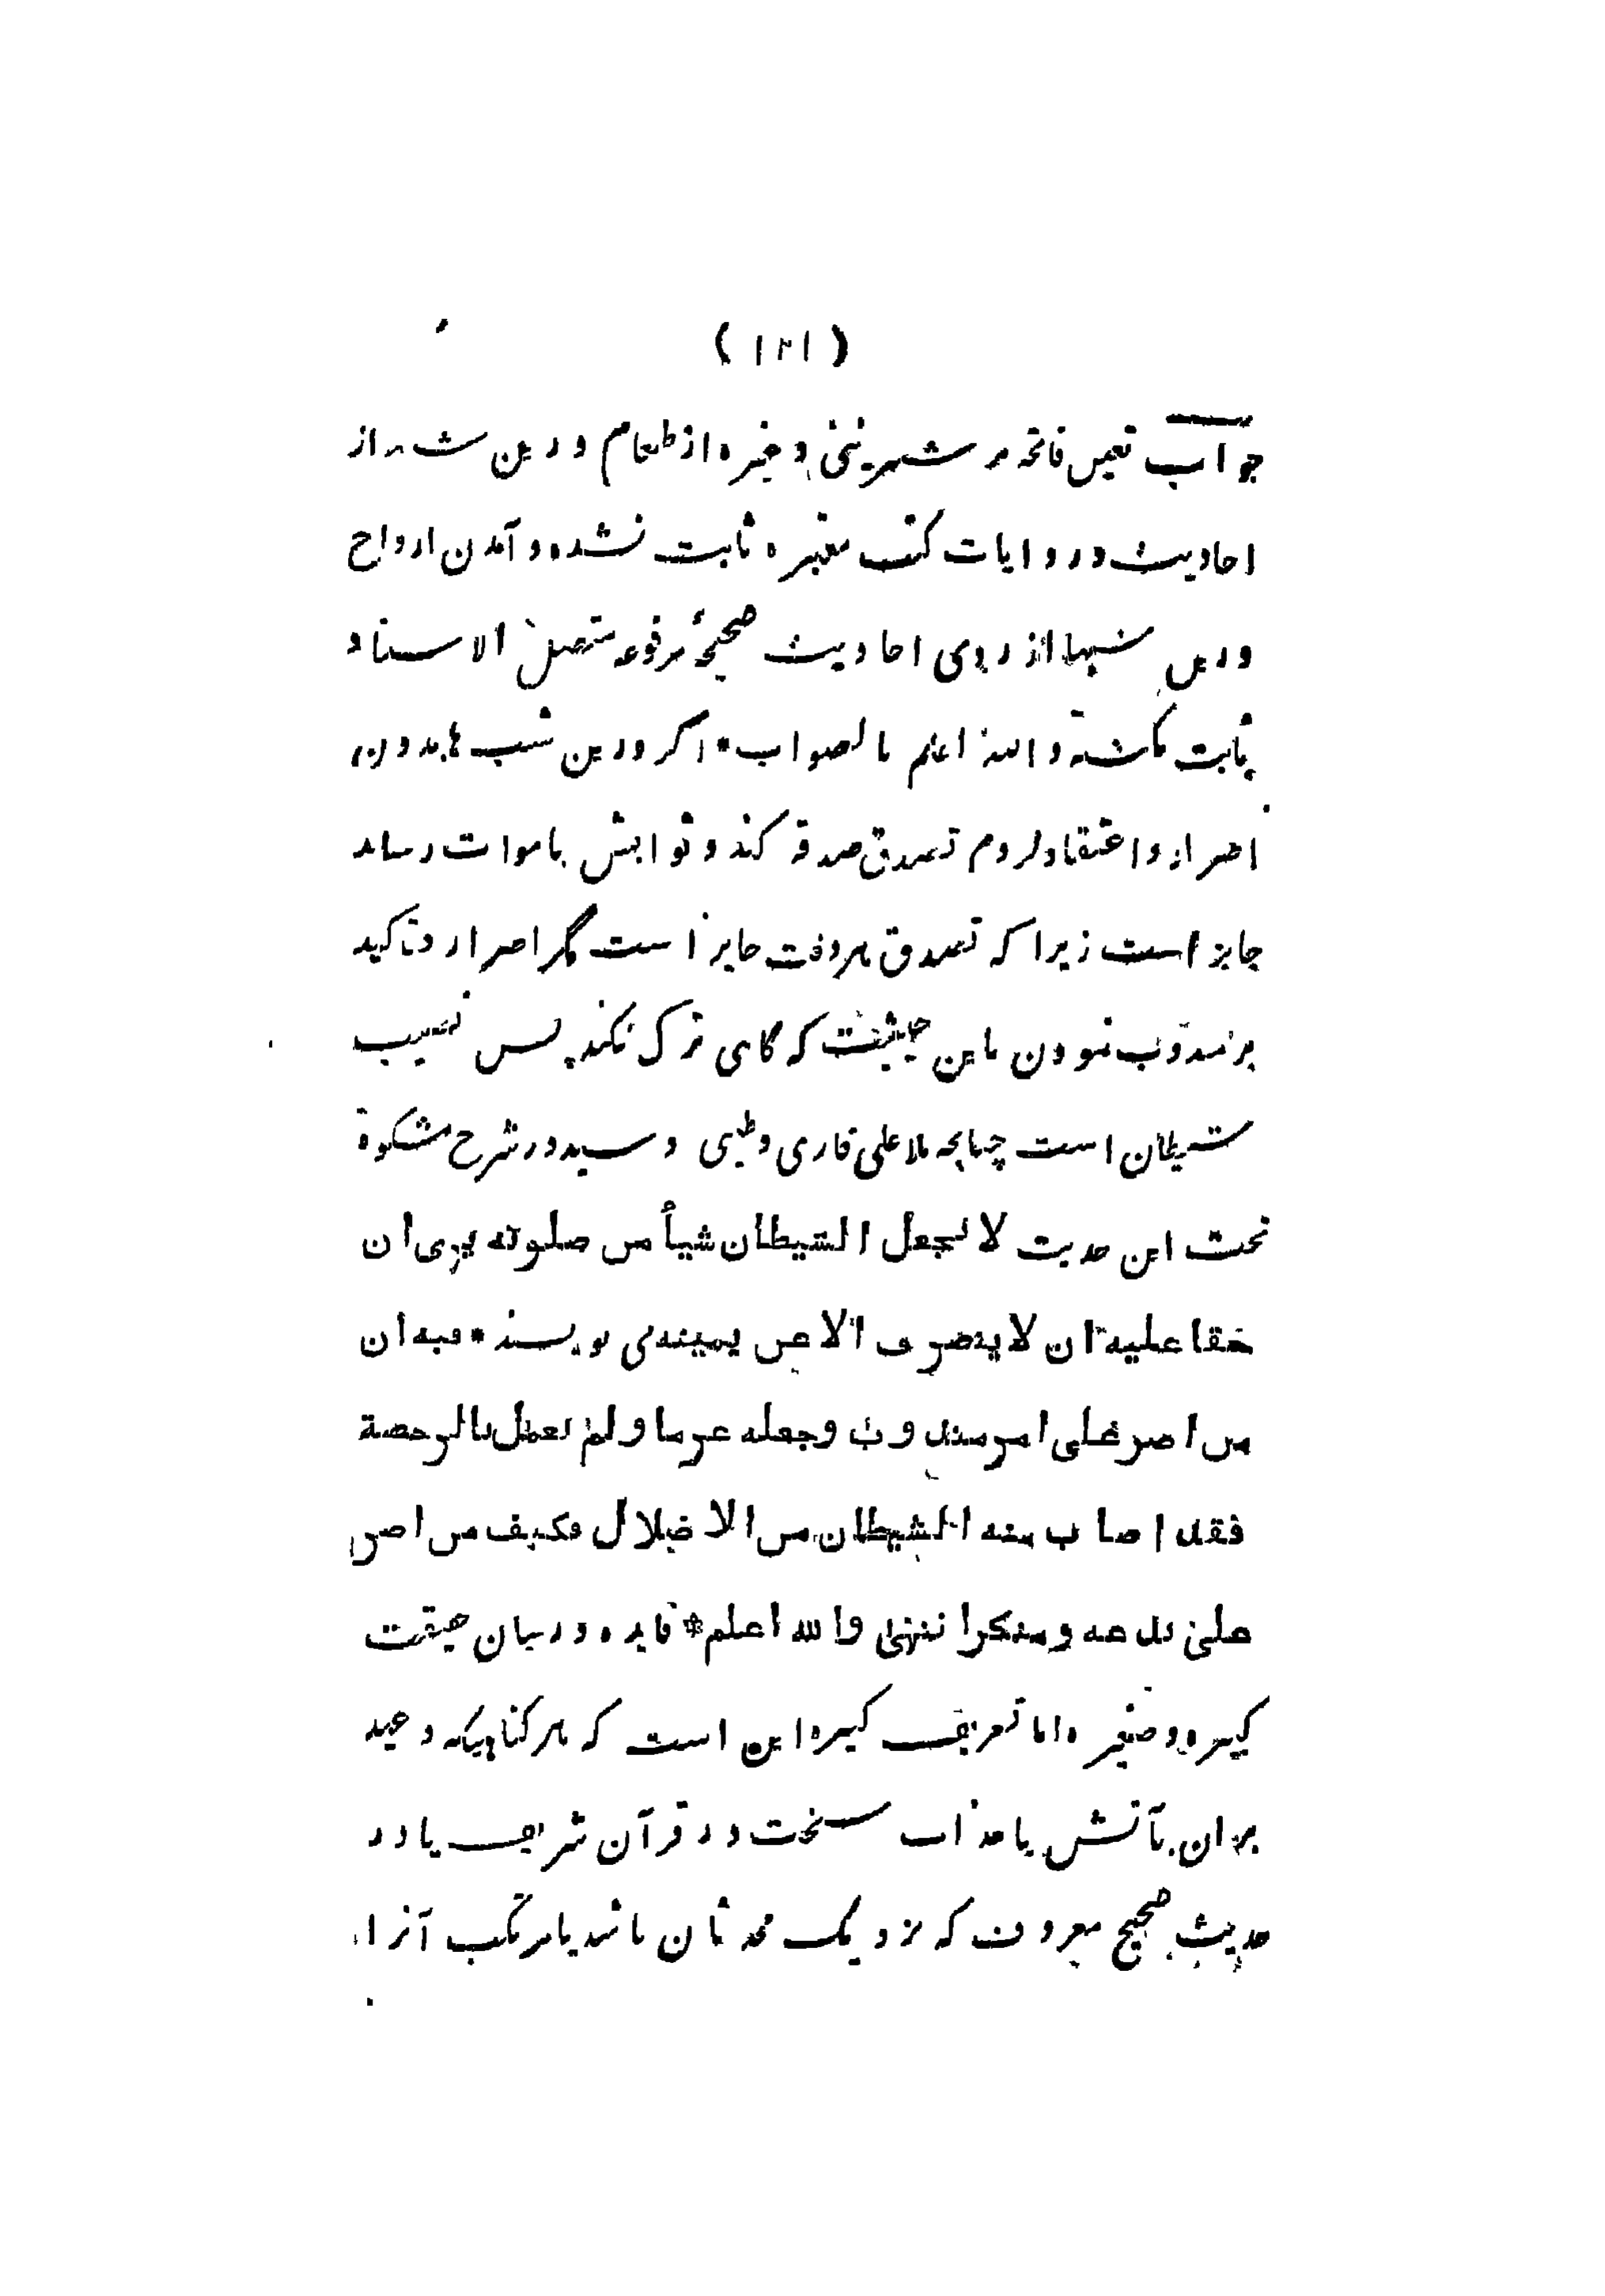 ( ١٢١ )
جواب تعین فاتحه بر شیرینی و غیره از طعام درین شب از
احادیث و روایات کتب معتبره ثابت نشده و آمدن ارواح
درین شبها از روی احادیث صحیحهٔ مرفوعه متصل الاسناد
ثابت نگشته والله اعلم بالصواب * اگر درین شب ها بدون
اصرار و اعتقاد لزوم تصدق صدقه کند و ثوابش باموات رساند
جایز است زیرا که تصدق هر وقت جایز است مگر اصرار و تاکید
بر مندوب نمودن باین حیثیت که گاهی ترک نکند پس نصیب
شیطان است چنانچه ملا علی قاری و طیبی و سید در شرح مشکوة
تحت این حدیث لا یجعل الشیطان شیأ من صلوته یری ان
حقا علیه ان لا ینصرف الا عن یمینه می نویسند * فیه ان
من اصر علی امر مندوب وجعله عزما ولم یعمل بالرخصة
فقد اصاب منه الشیطان من الاضلال فکیف من اصر
علی بدعه ومنکر انتهی والله اعلم * فایده در بیان حقیقت
کبیره و صغیره اما تعریف کبیره این است که هر گناهیکه وعید
بران بآتش یا عذاب سخت در قرآن شریف یا در
حدیث صحیح معروف که نزدیک محدثان باشد یا مرتکب آنرا